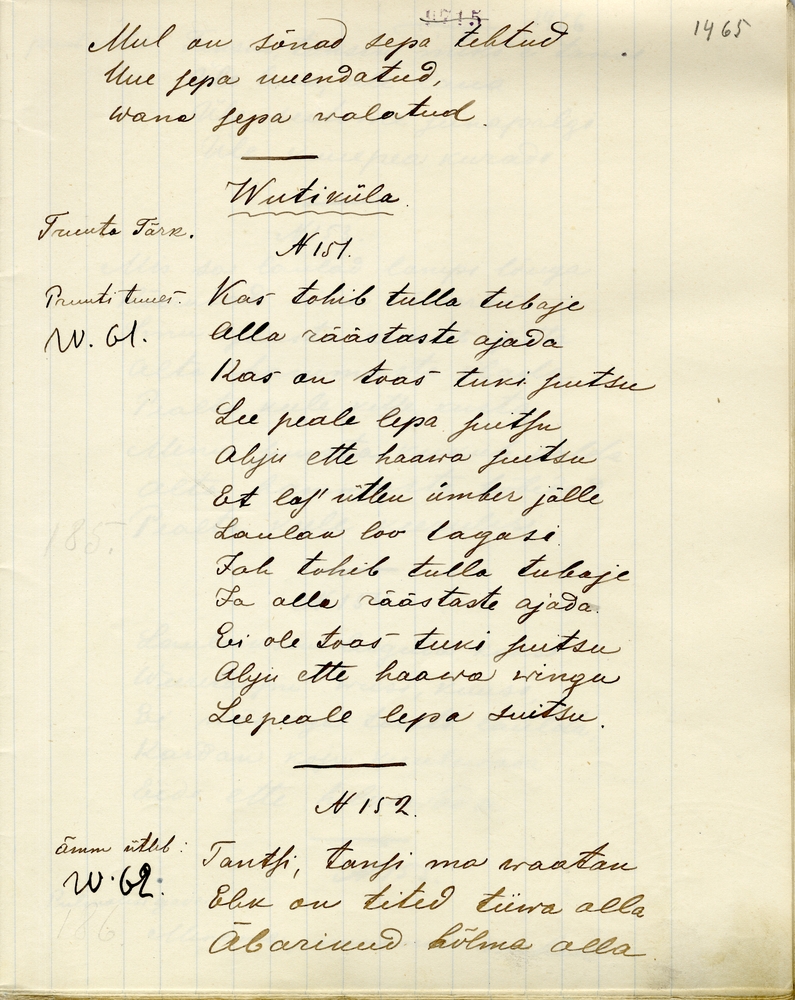 1465
Mul on sõnad sepa tehtud
Uue sepa uuendatud,
wana sepa walatud.
Wutiküla.
Truuta Tärk.
N 151.
Pruuti tuues. Kas tohib tulla tubaje
W. 61. Alla räästaste ajada
Kas on toas tuki suitsu
Lee peale lepa suitsu
Ahju ette haawa suitsu
Et las' ütlen ümber jälle
Laulan loo tagasi
Jah tohib tulla tubaje
Ja alla räästaste ajada.
Ei ole toas tuki suitsu
Ahju ette haawa wingu
Leepeale lepa suitsu.
N 152.
Ämm ütleb: Tantsi, tansi ma waatan
W. 62. Ehk on tited tiiwa alla
Äbarikud hõlma alla
185.
186